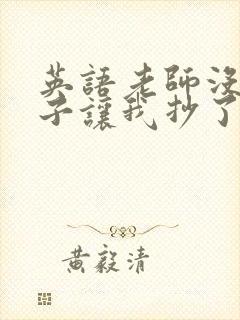 英語老師沒
子讓我抄了
黃毅清